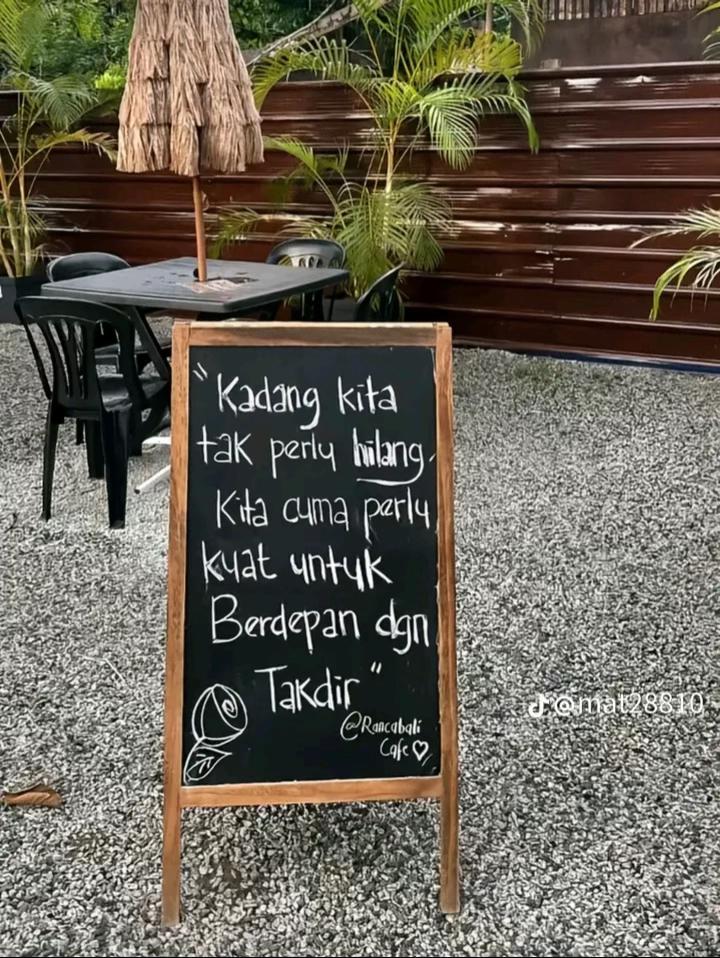 "Kadang kita
tak perlu hilang,
Kita cuma perlu
kuat untuk
Berdepan dgn
Takdir"
@Rancabali
Cafe ♡
@mat28810